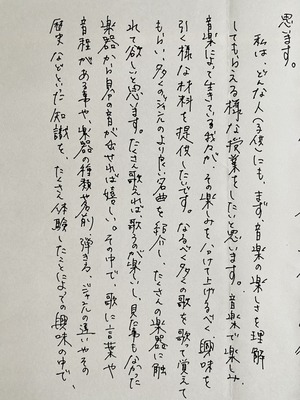 思います。
私は、どんな人(子供)にも、まず、音楽の楽しさを理解
してもらえる様な授業をしたいと思います。音楽で楽しみ、
音楽によって生きている我々が、その楽しみを分けて上げるべく、興味を
引く様な材料を提供したいです。なるべく多くの歌を歌って覚えて
もらい、多くのジャンルのより良い名曲を紹介し、たくさんの楽器に触
れて欲しいと思います。たくさん歌えれば、歌うのが楽しいし、見た事もなかった
楽器から自分の音が出せれば嬉しい。その中で、歌に言葉や
音程がある事や、楽器の種類や名前、弾き方、ジャンルの違いやその
歴史などといった知識を、たくさん体験したことによっての興味の中で、